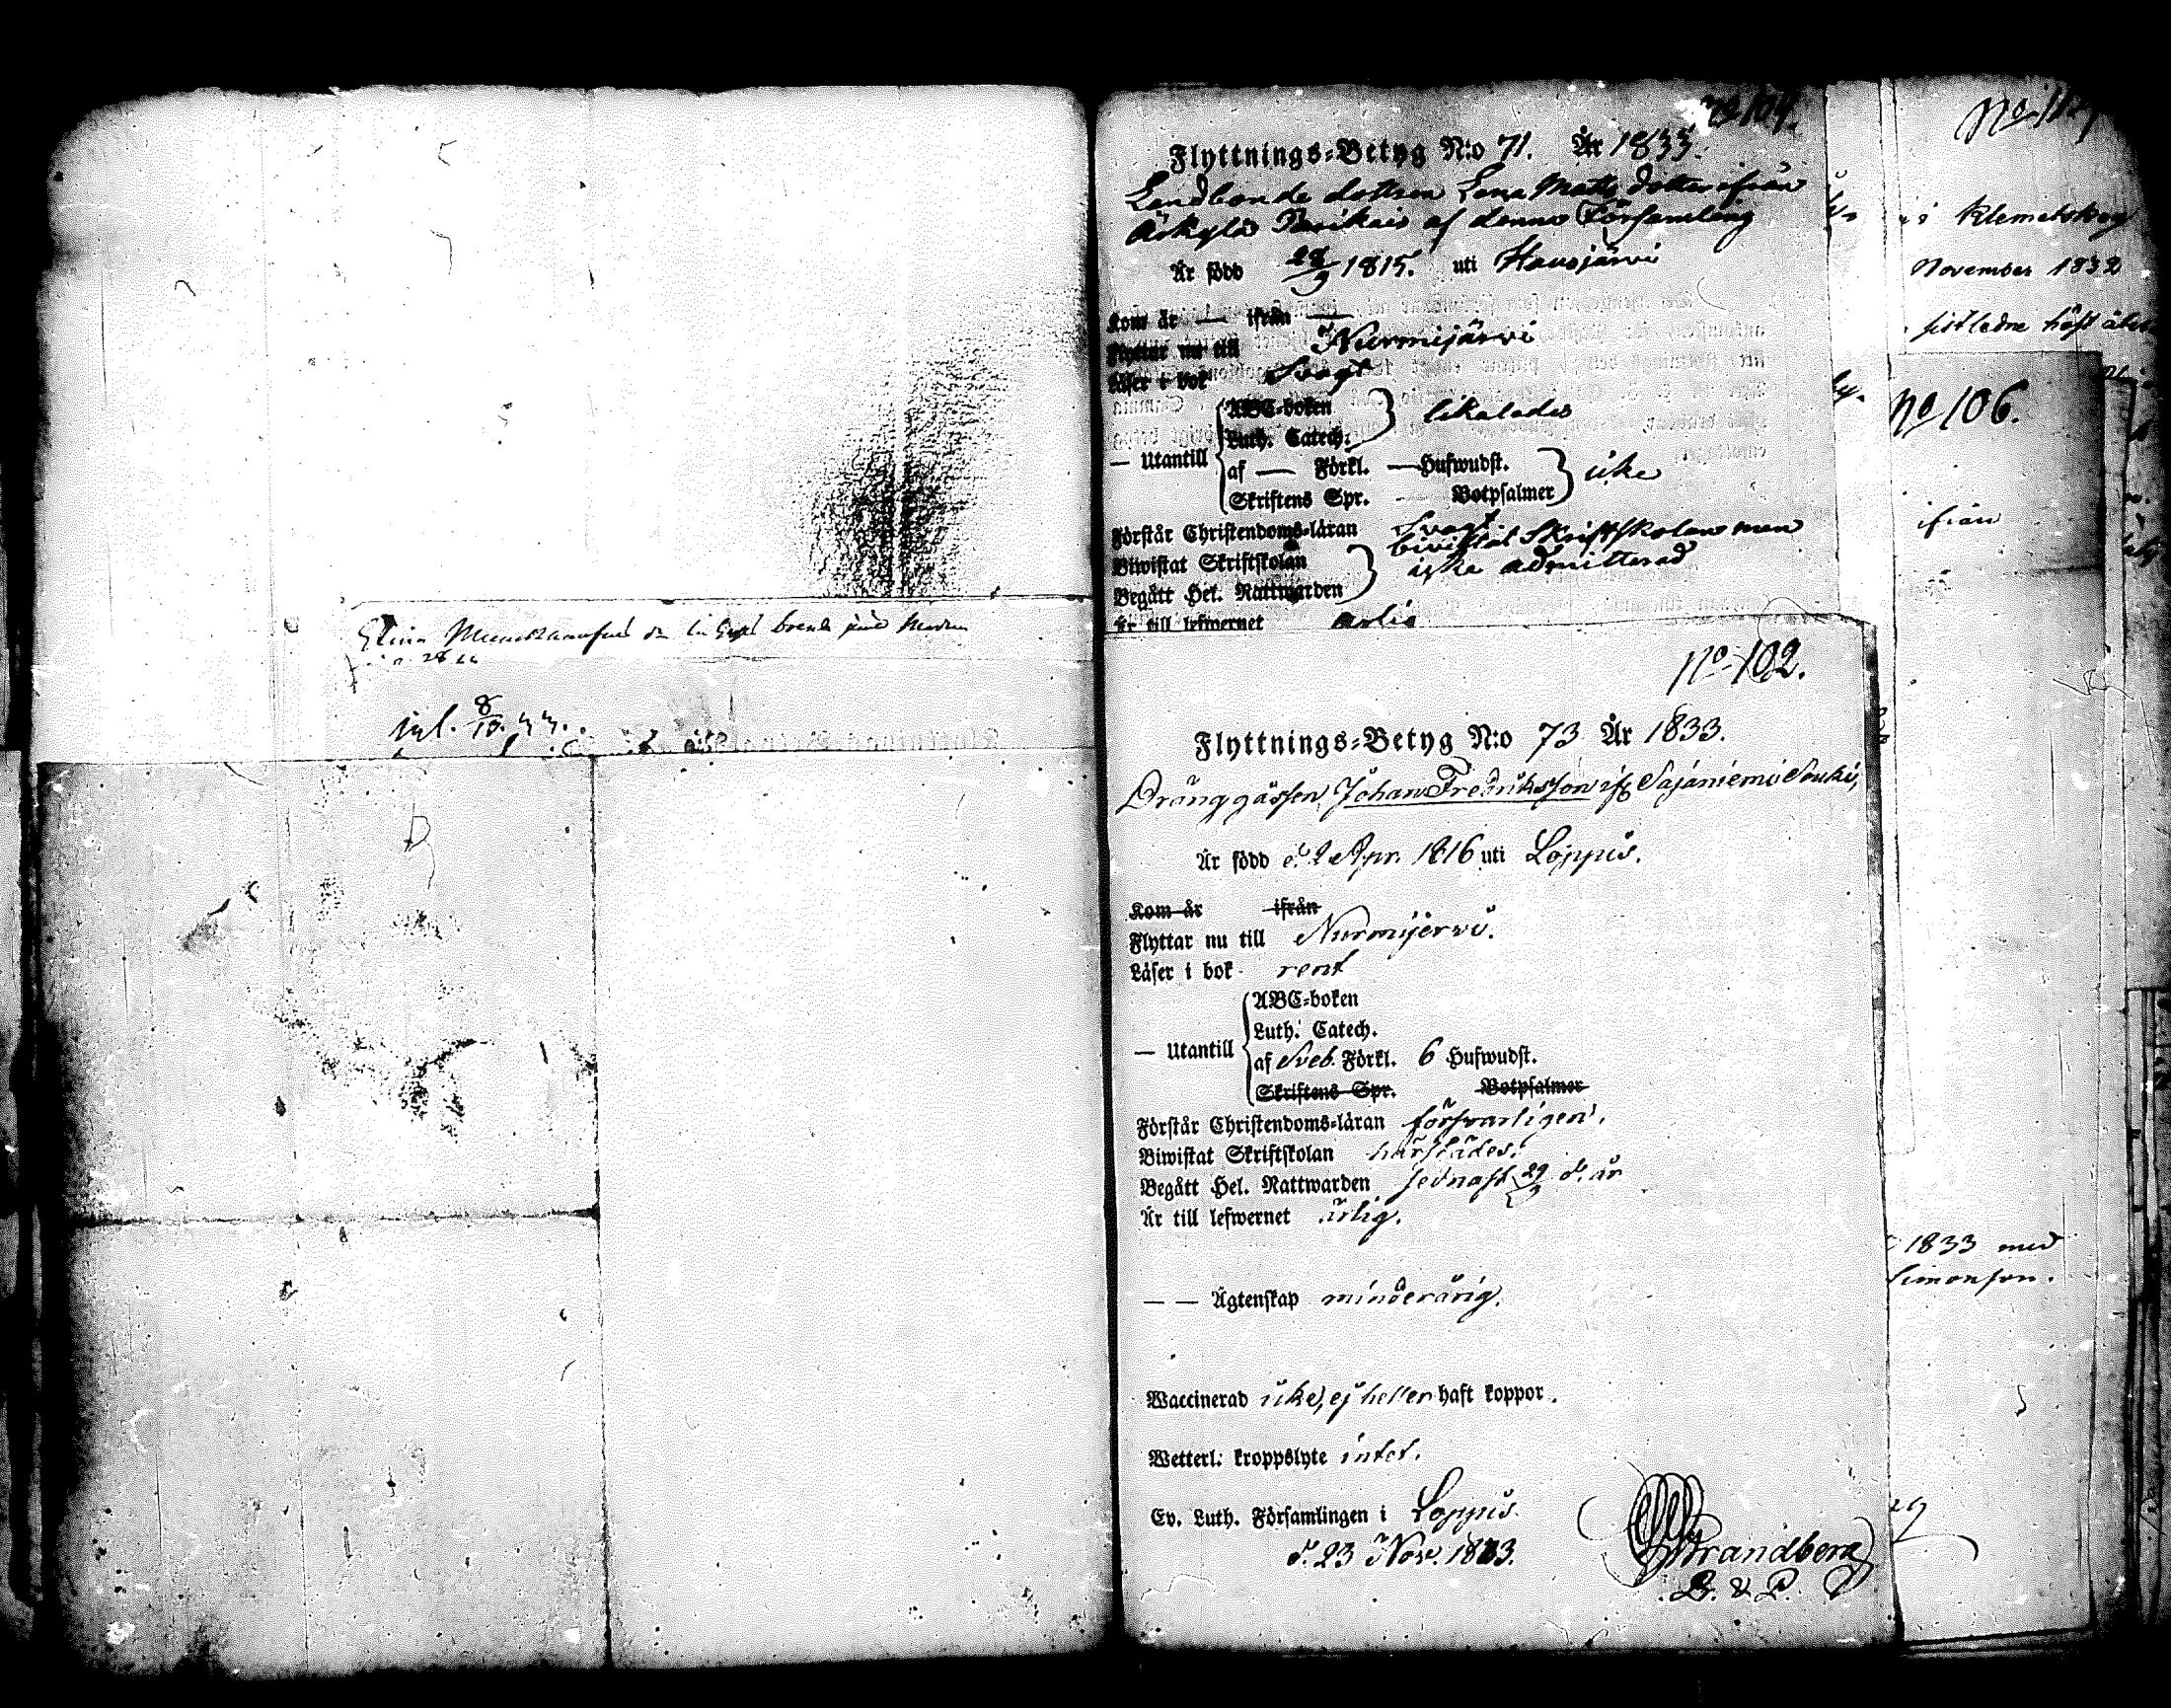 inl. 8/10. 33.
No 104.
Flyttnings-Betyg N:o 71. År 1833.
Landbonde dottren Lena Matts dotter ifrån
af denna Församling
Är född 28/9 1815. uti Hausjärvi
Kom år — ifrån —
Flyttar nu till Nurmijärvi
Läser i bok Svagt
ABC-boken
Luth. Catech. likaledes
— Utantill
af — Förkl. — Hufwudst.
Skriftens Spr. — Botpsalmer icke
Förstår Christendoms-läran Svagt
Biwistat Skriftskolan bivistat Skriftskolan men
Begått Hel. Nattwarden icke admitterad
Är till lefwernet ärlig
No 102.
Flyttnings-Betyg N:o 73 År 1833.
Dräng gåssen Johan Fredriksson ifr. Sajaniemi Souki,
Är född d. 2 Apr. 1816 uti Loppis.
Kom år ifrån
Flyttar nu till Nurmijerwi.
Läser i bok rent
ABC-boken
Luth. Catech.
— Utantill
af Sveb. Förkl. 6 Hufwudst.
Skriftens Spr. Botpsalmer
Förstår Christendoms-läran försvarligen.
Biwistat Skriftskolan härstädes.
Begått Hel. Nattwarden sednast 29/9 d. år
Är till lefwernet ärlig.
— — Ägtenskap minderårig.
Waccinerad icke, ej heller haft koppor.
Wetterl. kroppslyte intet.
Ev. Luth. Församlingen i Loppis
d. 23 Nov. 1833.
Strandberg
Klemetskog
November 1832
sistledne höst
No 106.
ifrån
1833 med
Simonson.